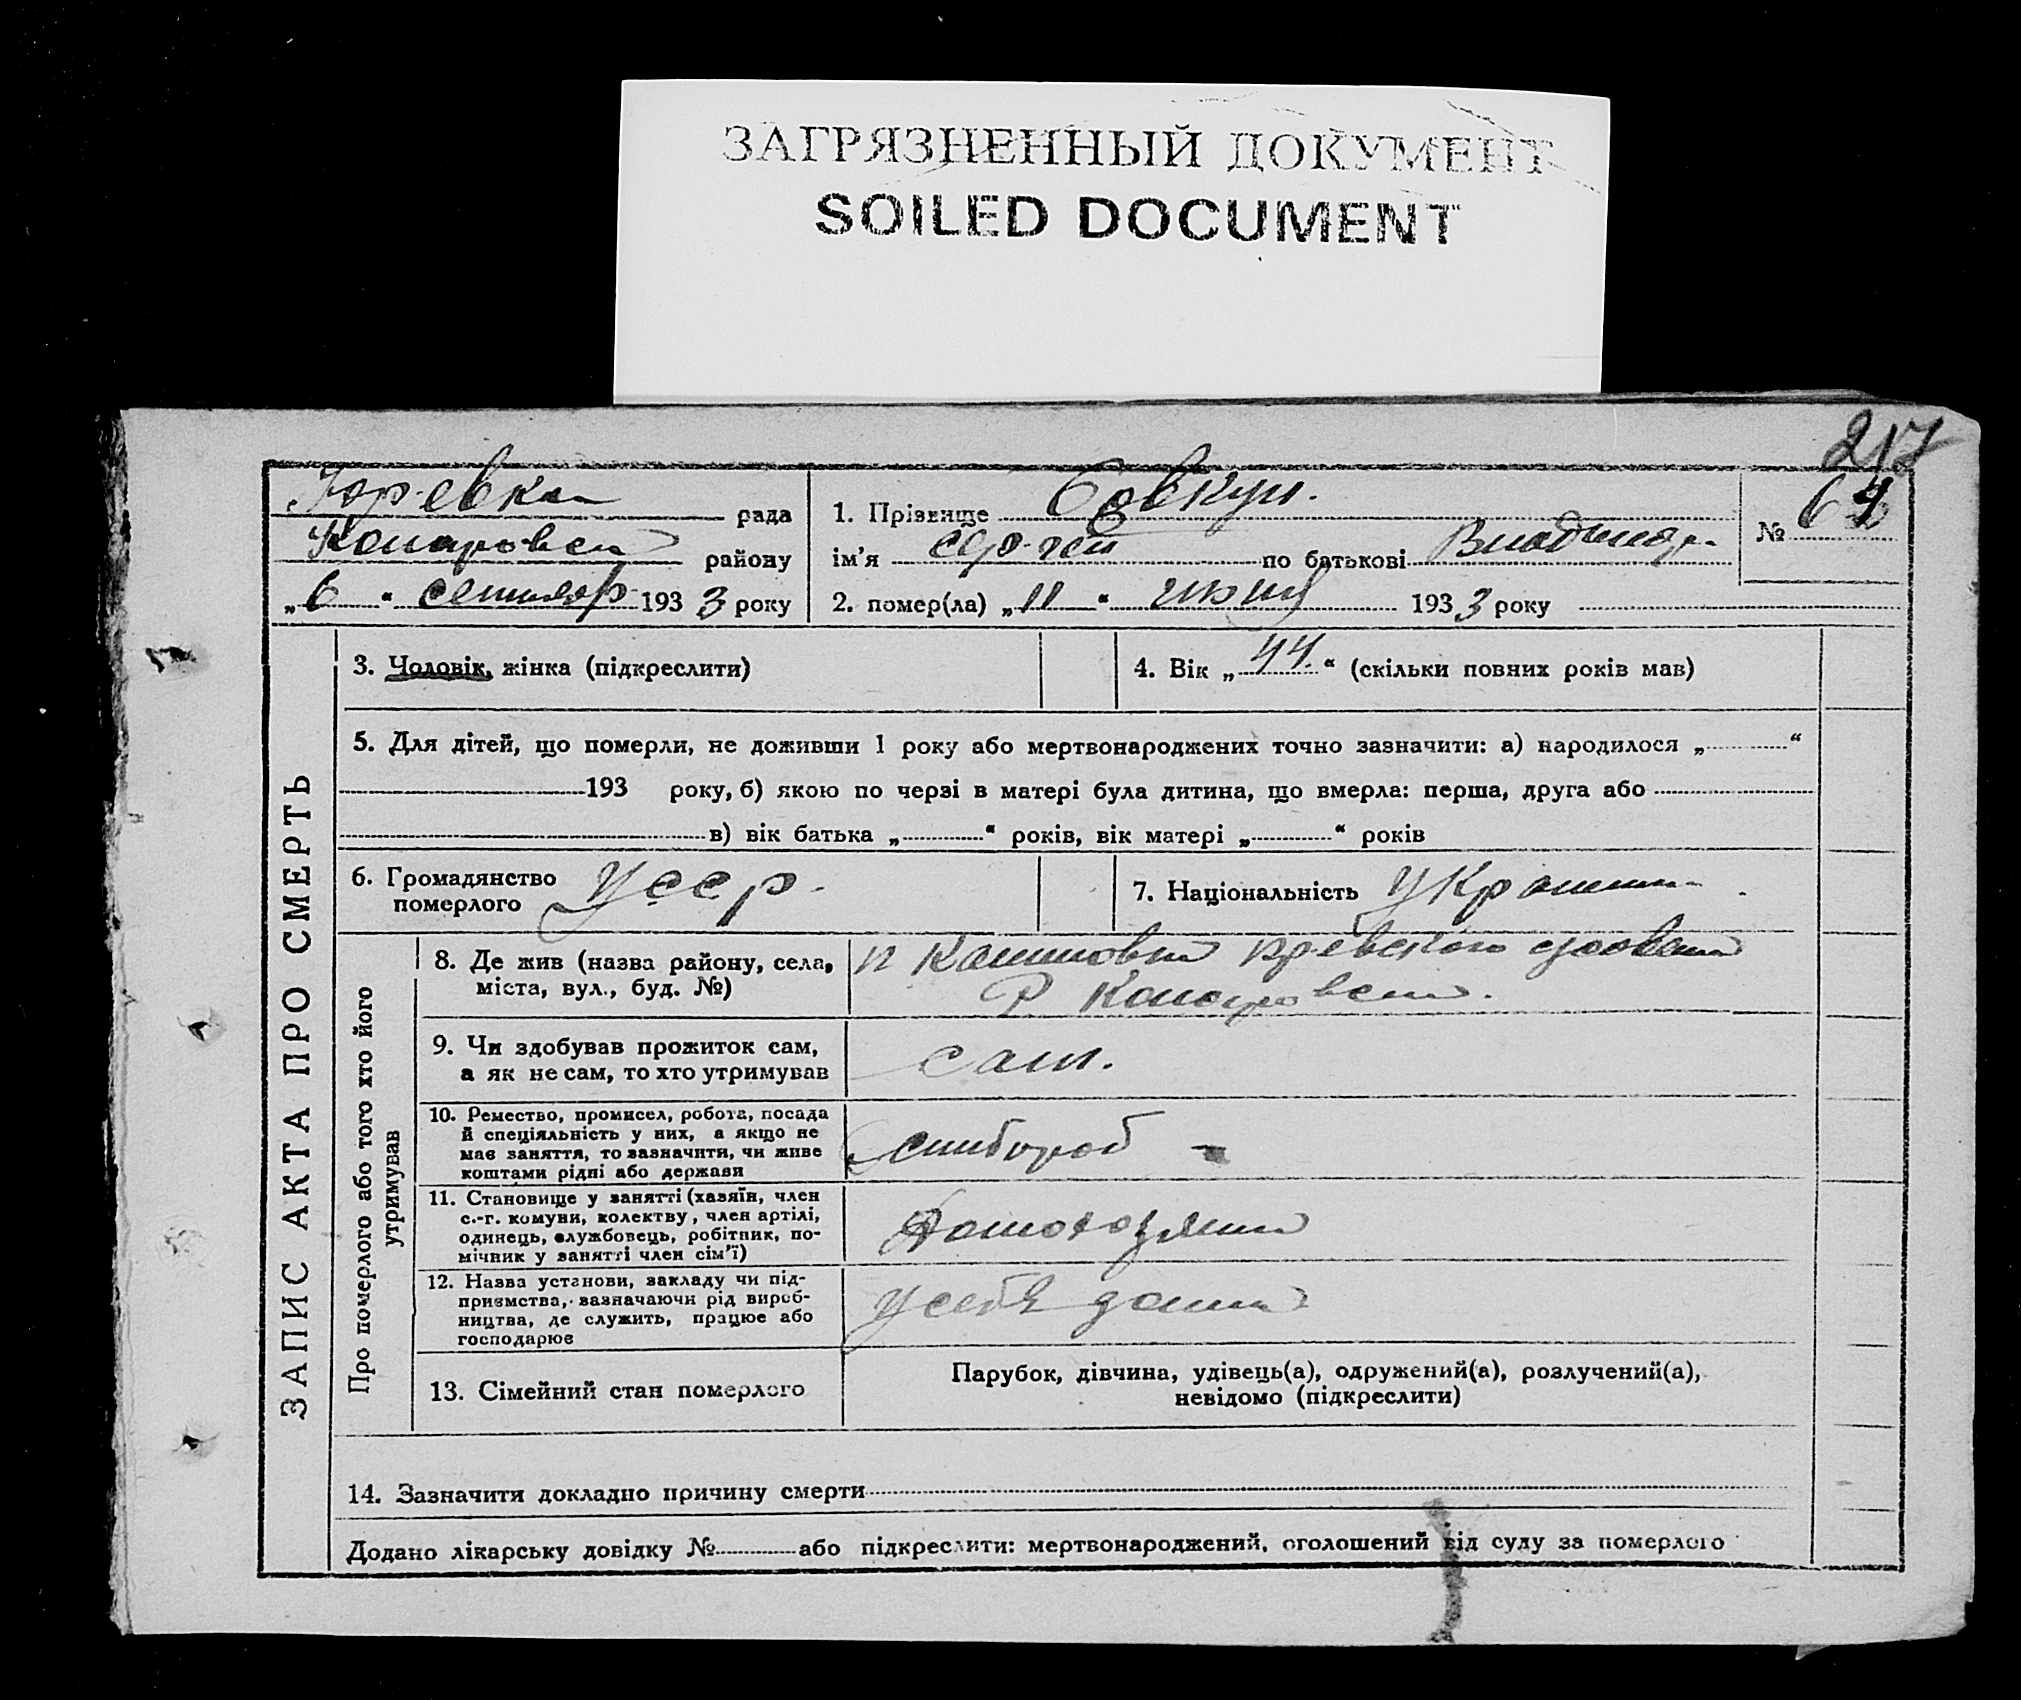 ЗАГРЯЗНЕННЫЙ ДОКУМЕНТ
SOILED DOCUMENT
217
Юревка рада
района району
„6“ сентябр 1933 року
1. Прізвище Совкун.
ім'я по батькові Владимир.
№ 64
2. помер(ла) „11“ 1933 року
ЗАПИС АКТА ПРО СМЕРТЬ
3. Чоловік, жінка (підкреслити)
4. Вік „44.“ (скільки повних років мав)
5. Для дітей, що померли, не доживши 1 року або мертвонароджених точно зазначити: а) народилося „ “
193 року, б) якою по черзі в матері була дитина, що вмерла: перша, друга або
в) вік батька „ “ років, вік матері „ “ років
6. Громадянство
померлого
Усср.
7. Національність Украинин
Про померлого або того хто його
утримував
8. Де жив (назва району, села,
міста, вул., буд. №)
Р.
9. Чи здобував прожиток сам,
а як не сам, то хто утримував
сам.
10. Ремество, промисел, робота, посада
й спеціяльність у них, а якщо не
має заняття, то зазначити, чи живе
коштами рідні або держави
хлибороб
11. Становище у занятті (хазяїн, член
с.-г. комуни, колектву, член артілі,
одинець, службовець, робітник, по-
мічник у занятті член сім'ї)
Домохозяин
12. Назва установи, закладу чи під-
приємства, зазначаючи рід вироб-
ництва, де служить, працює або
господарює
У себя дома
13. Сімейний стан померлого
Парубок, дівчина, удівець(а), одружений(а), розлучений(а),
невідомо (підкреслити)
14. Зазначити докладно причину смерти
Додано лікарську довідку № або підкреслити: мертвонароджений, оголошений від суду за померлого